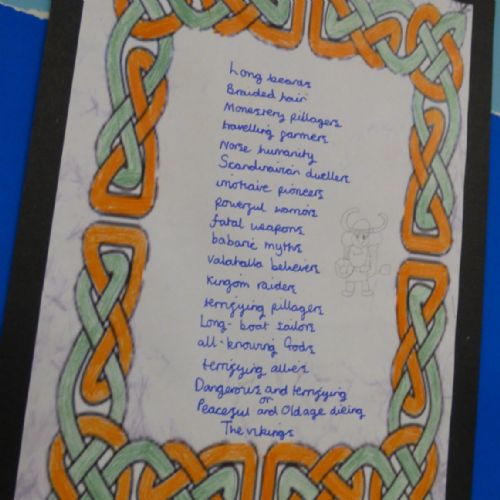 Long beards
Braided hair
Monestrery pillagers
travelling farmers
Norse humanity
Scandinavian dwellers
inotraive pioneers
powerful warriors
fatal weapons
babaric myths
Valahalla believers
Kingom raiders
terrifying pillagers
Long-boat sailors
all-knowing Gods
terrifying allies
Dangerous and terrifying
or
Peaceful and Oldage dieing
The vikings